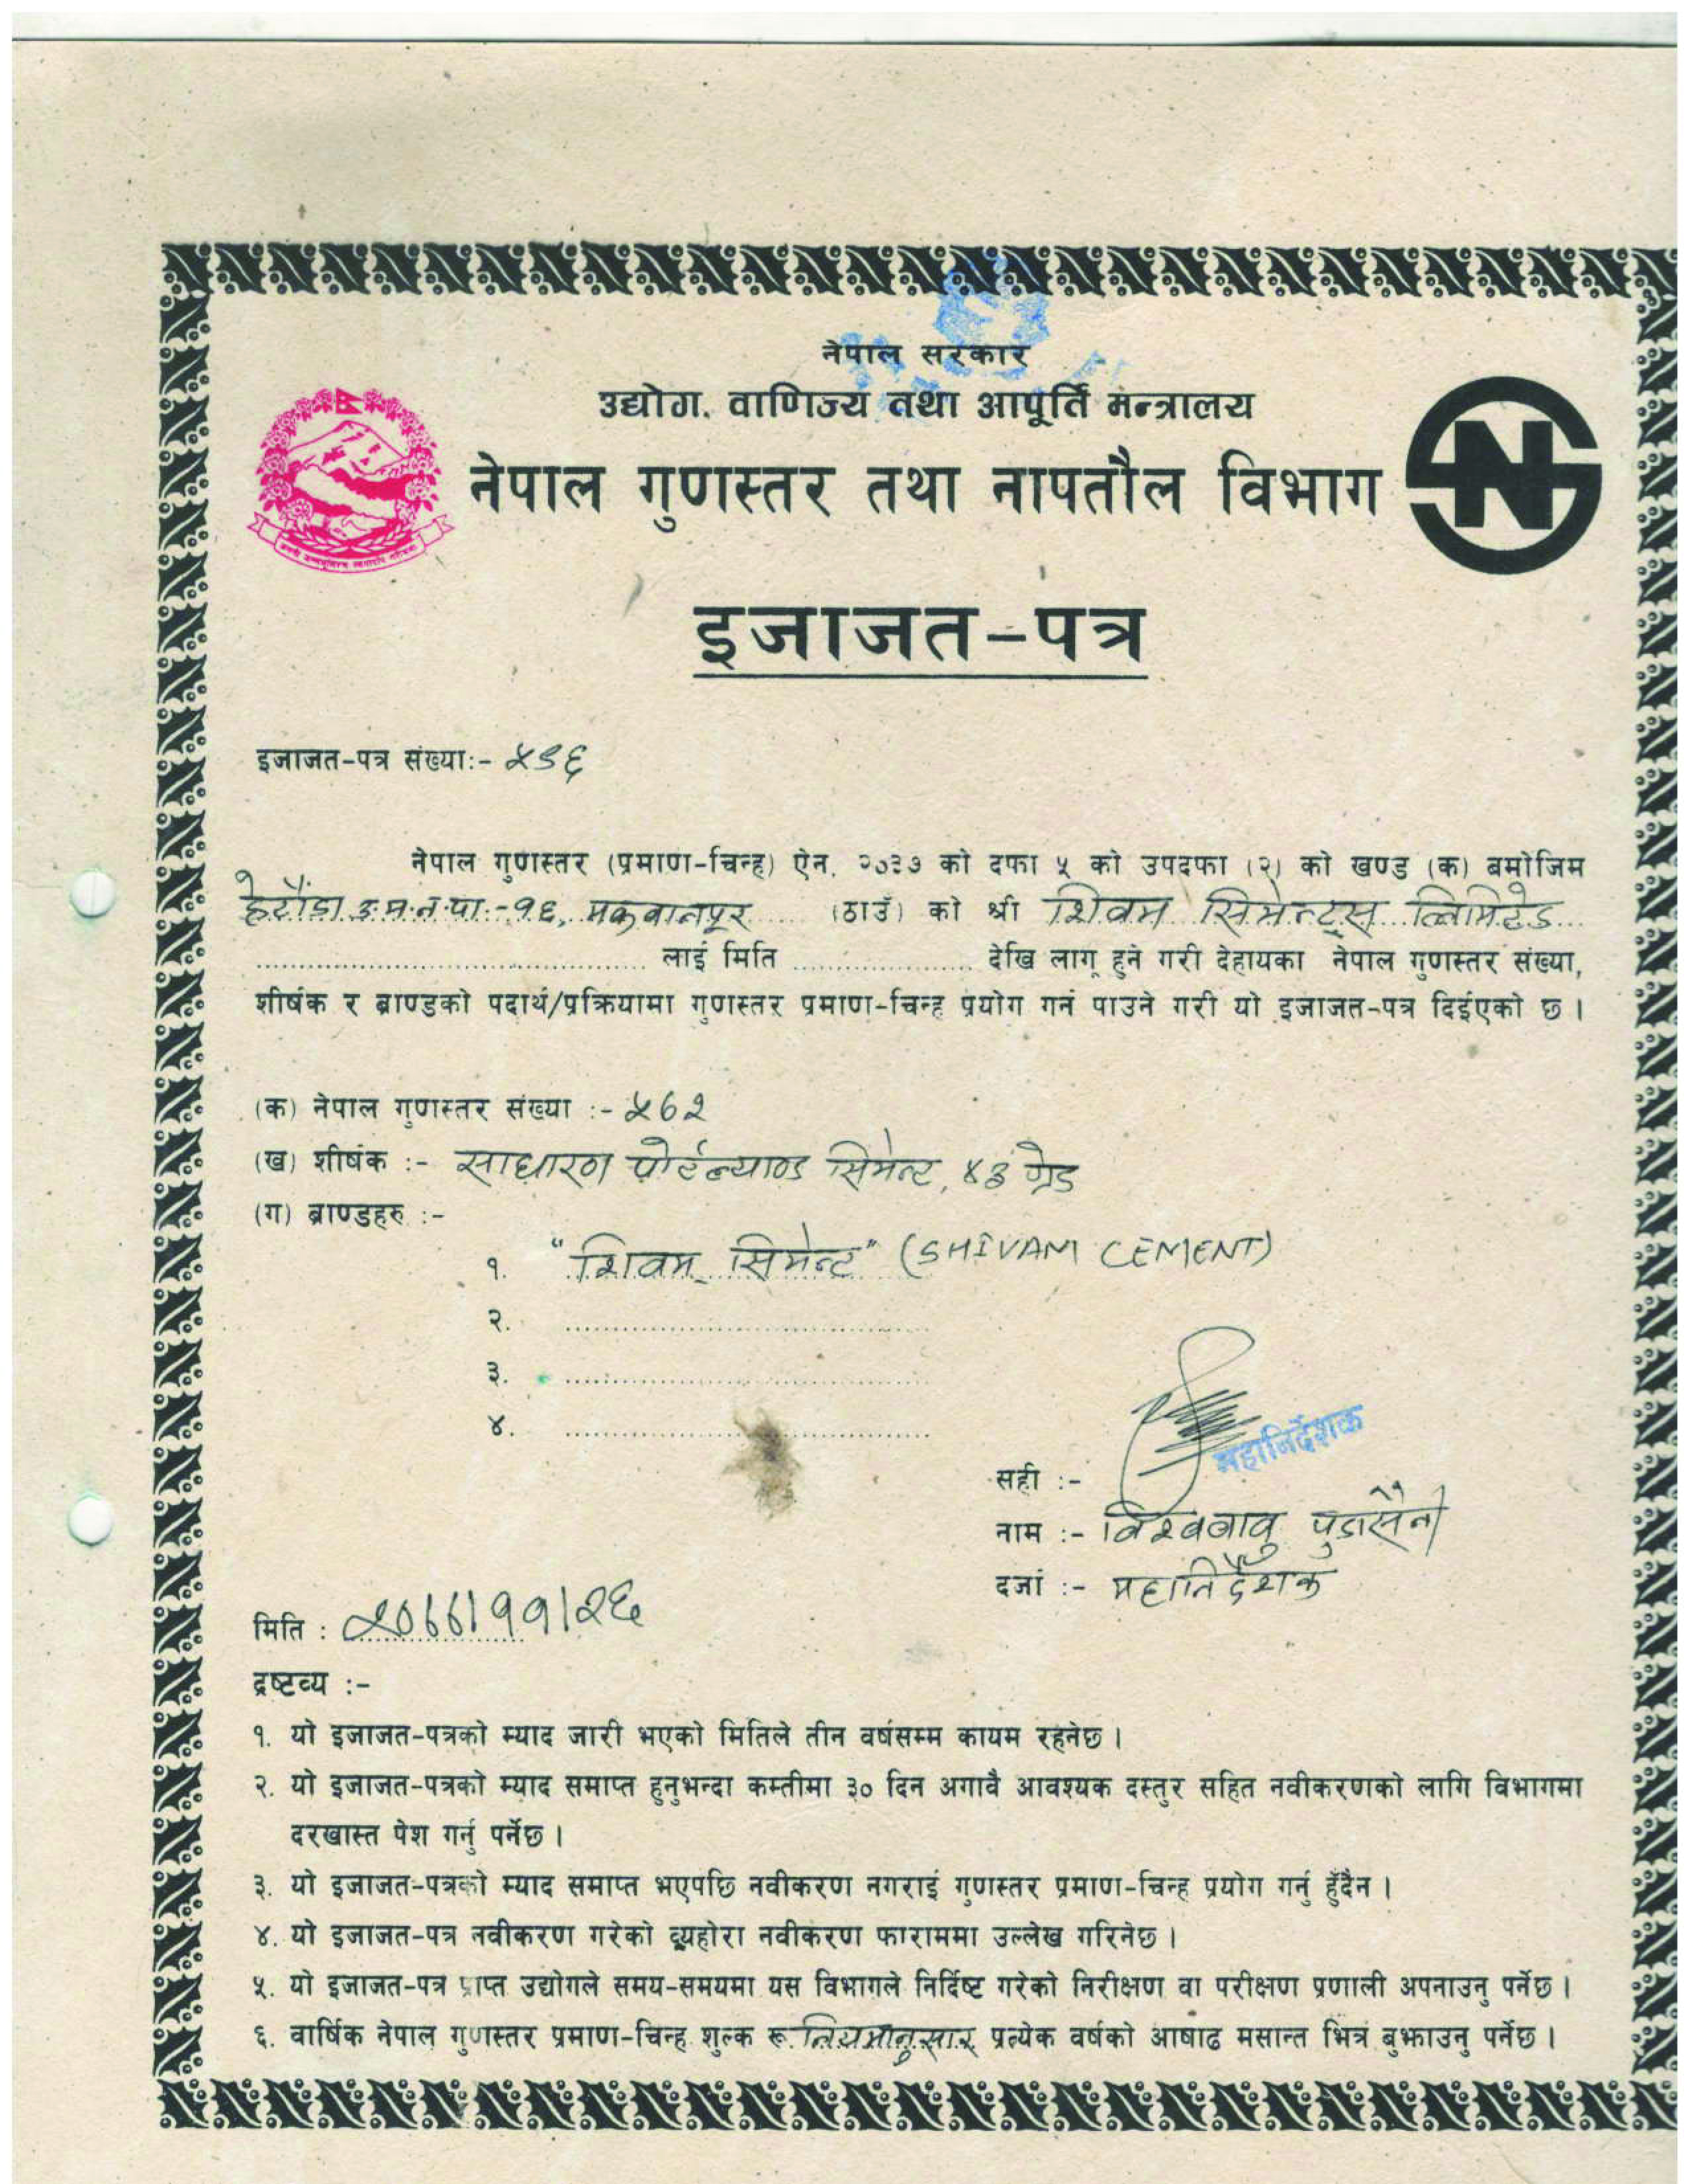 नेपाल सरकार
उद्योग, वाणिज्य तथा आपूर्ति मन्त्रालय
नेपाल गुणस्तर तथा नापतौल विभाग
इजाजत-पत्र
इजाजत-पत्र संख्या:- ५९६
नेपाल गुणस्तर (प्रमाण-चिन्ह) ऐन, २०३७ को दफा ५ को उपदफा (२) को खण्ड (क) बमोजिम
हेटौंडा उ.म.न.पा.-१६, मकवानपूर (ठाउँ) को श्री शिवम सिमेन्ट्स लिमिटेड
लाई मिति देखि लागू हुने गरी देहायका नेपाल गुणस्तर संख्या,
शीर्षक र ब्राण्डको पदार्थ/प्रक्रियामा गुणस्तर प्रमाण-चिन्ह प्रयोग गर्न पाउने गरी यो इजाजत-पत्र दिईएको छ ।
(क) नेपाल गुणस्तर संख्या :- ५७२
(ख) शीर्षक :- साधारण पोर्टल्याण्ड सिमेन्ट, ४३ ग्रेड
(ग) ब्राण्डहरु :-
१. "शिवम सिमेन्ट" (SHIVAM CEMENT)
२.
३.
४.
महानिर्देशक
सही :-
नाम :- विश्वबाबु पुडासैनी
दर्जा :- महानिर्देशक
मिति : २०७७।११।२६
द्रष्टव्य :-
१. यो इजाजत-पत्रको म्याद जारी भएको मितिले तीन वर्षसम्म कायम रहनेछ ।
२. यो इजाजत-पत्रको म्याद समाप्त हुनुभन्दा कम्तीमा ३० दिन अगावै आवश्यक दस्तुर सहित नवीकरणको लागि विभागमा
दरखास्त पेश गर्नु पर्नेछ ।
३. यो इजाजत-पत्रको म्याद समाप्त भएपछि नवीकरण नगराई गुणस्तर प्रमाण-चिन्ह प्रयोग गर्नु हुँदैन ।
४. यो इजाजत-पत्र नवीकरण गरेको व्यहोरा नवीकरण फाराममा उल्लेख गरिनेछ ।
५. यो इजाजत-पत्र प्राप्त उद्योगले समय-समयमा यस विभागले निर्दिष्ट गरेको निरीक्षण वा परीक्षण प्रणाली अपनाउनु पर्नेछ ।
६. वार्षिक नेपाल गुणस्तर प्रमाण-चिन्ह शुल्क रू नियमानुसार प्रत्येक वर्षको आषाढ मसान्त भित्र बुझाउनु पर्नेछ ।